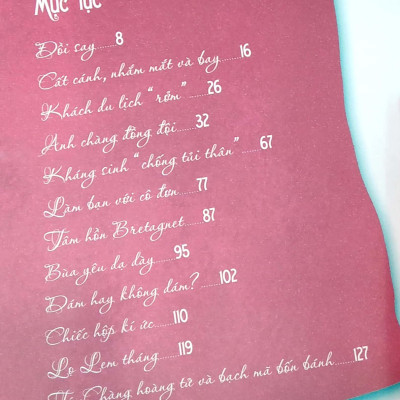 Mục lục
Đồi say.......8
Cất cánh, nhắm mắt và bay.......16
Khách du lịch "rởm".......26
Anh chàng đồng đội.......32
Kháng sinh "chống túi thân".......67
Làm bạn với cô đơn.......77
Tâm hồn Bretagnet.......87
Bùa yêu dạ dày.......95
Dám hay không dám?.......102
Chiếc hộp kí ức.......110
Lọ Lem tháng.......119
Chàng hoàng tử và bạch mã bốn bánh.......127